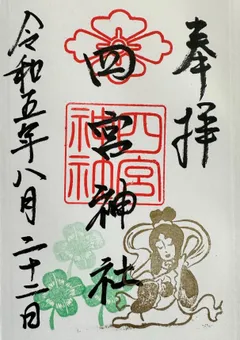 奉拝
四宮神社
四宮
神社
令和五年八月二十二日